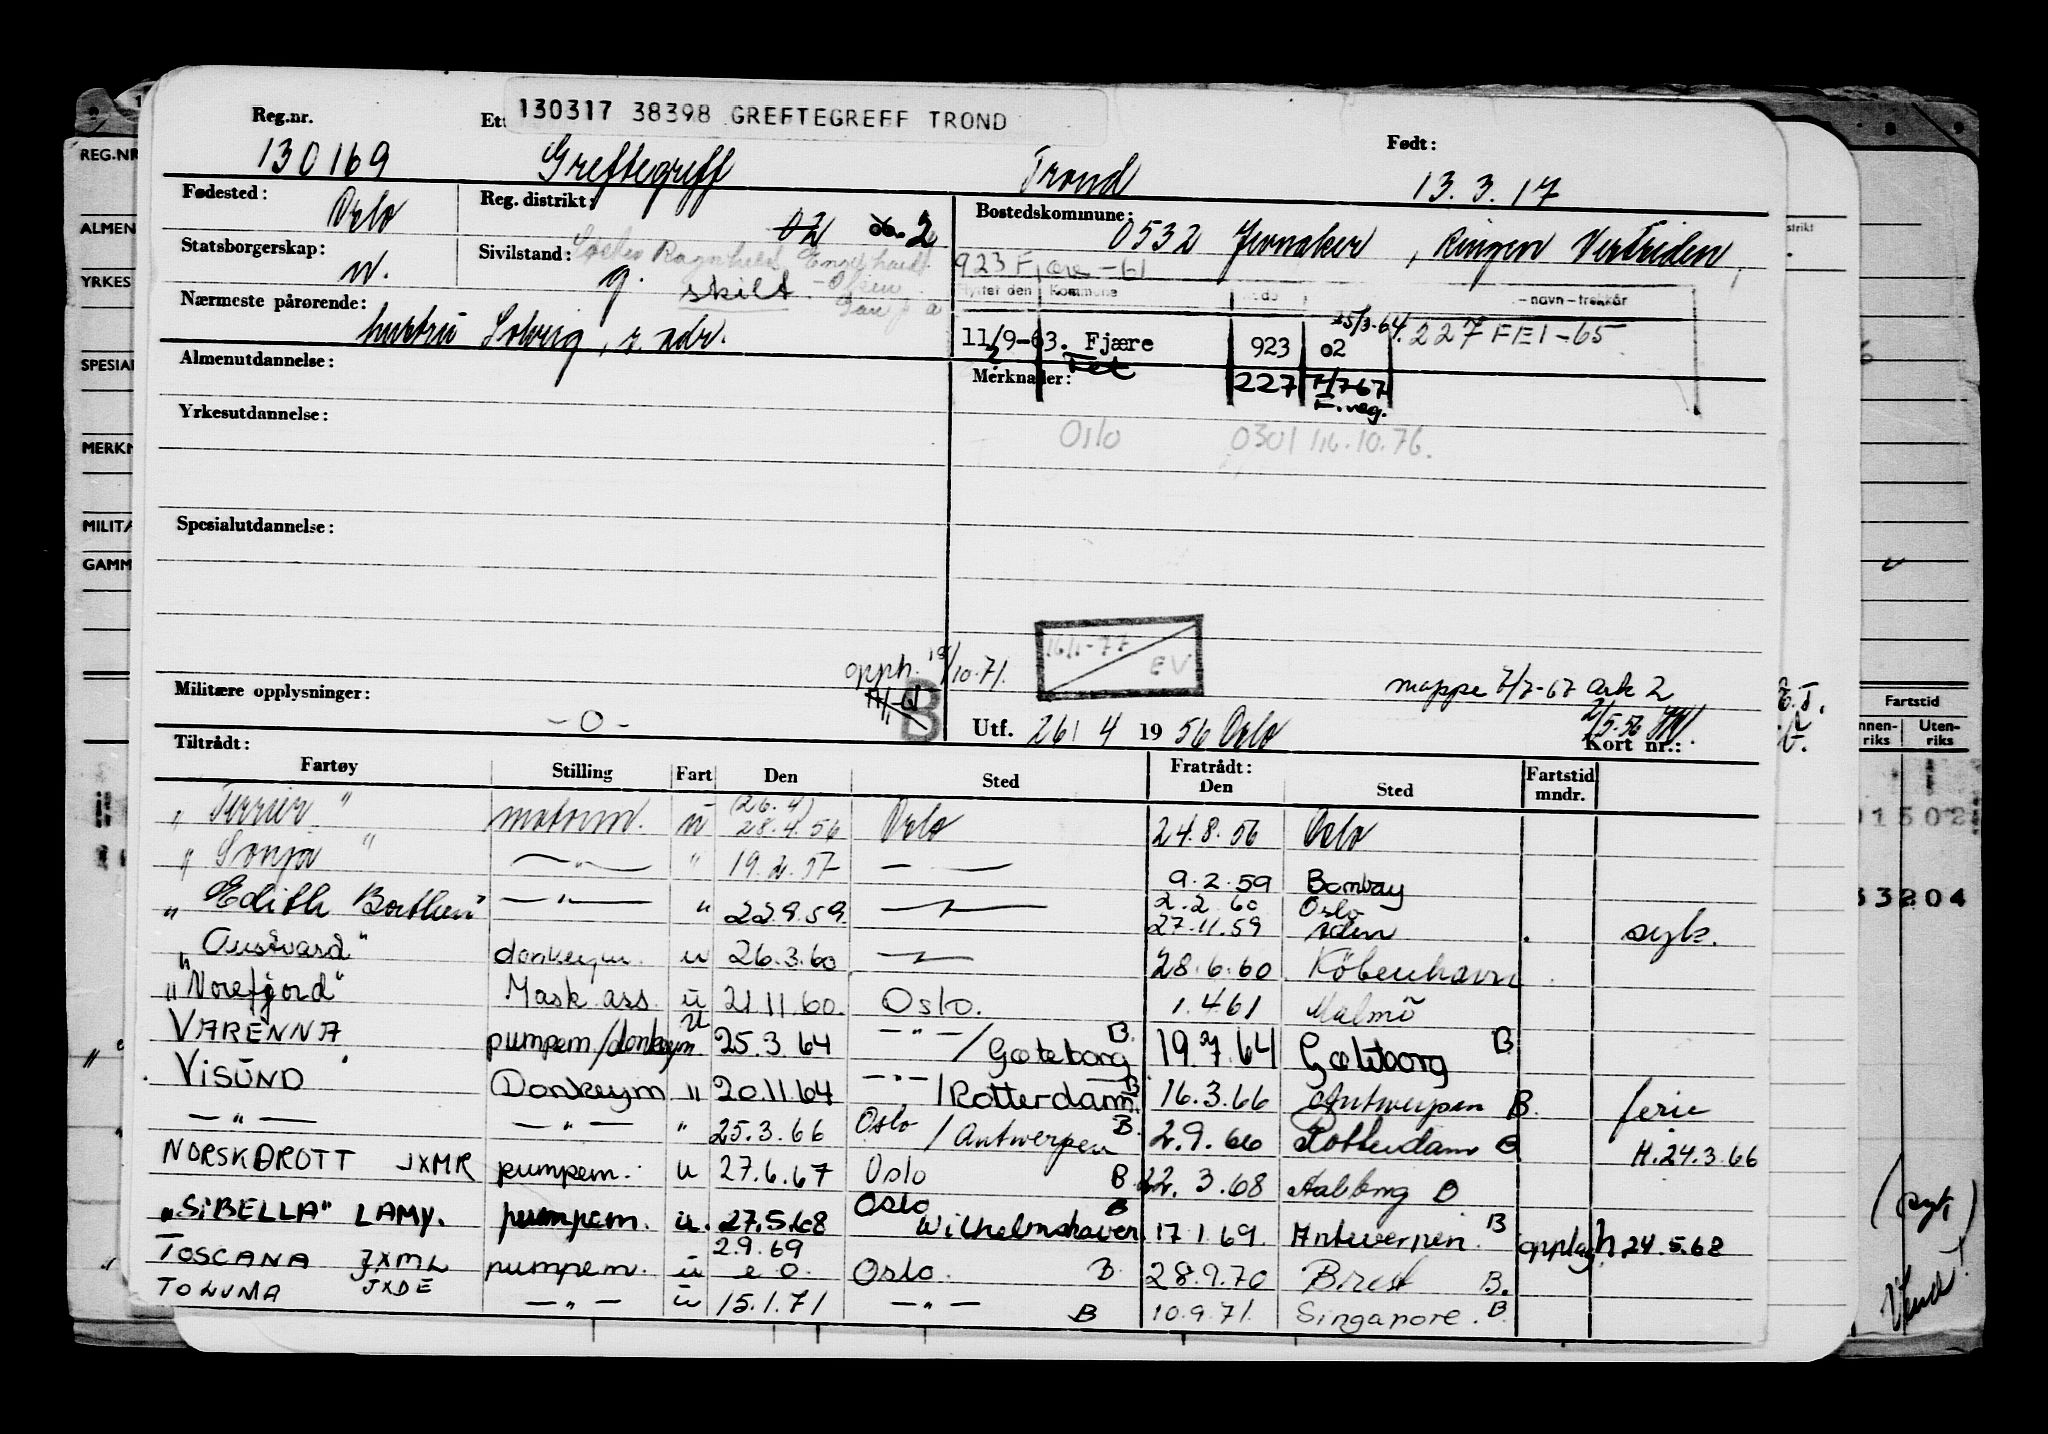 130317 38398 GREFTEGREFF TROND
Reg.nr. Ett Født:
130169 Greftegreff Trond 13.3.17
Fødested: Oslo Reg. distrikt: 02 2 Bostedskommune: 0532 Jevnaker, Ringen Vertriden,
Statsborgerskap: n. Sivilstand: g. skilt 923 Fjære -61
flyttet den Kommune kode -navn-trekkår
Nærmeste pårørende: hustru Solveig, s. adr.
11/9-63. Fjære 923 02 25/3-64. 227 FEI-65
Almenutdannelse: Merknader: Fet 227 7/7 67 F.reg.
Yrkesutdannelse: Oslo 0301 16.10.76.
Spesialutdannelse:
16/1-77 EV
opph. 18/10.71.
mappe 7/7-67 Ark 2
Militære opplysninger: -0- B Utf. 26/4 1956 Oslo 2/5-56 Kort nr.:
Tiltrådt: Fratrådt:
Fartøy Stilling Fart Den Sted Den Sted Fartstid mndr.
"Terrier" motorm. u (26.4) 28.4.56 Oslo 24.8.56 Oslo
"Sonja" —"— " 19.2.57 —"— 9.2.59 Bombay
2.2.60 Oslo
"Edith Borthen" —"— " 22.9.59. —"— 27.11.59 Aden syk.
"Austvard" donkeym. u 26.3.60 —"— 28.6.60 Köbenhavn
"Norefjord" Mask ass. u 21.11.60. Oslo. 1.4.61 Malmö
VARENNA pumpem/donkeym. u 25.3.64 —"—/Gøteborg B 19.7.64 Gøteborg B
VISUND Donkeym " 20.11.64 —"—/Rotterdam B 16.3.66 Antwerpen B. ferie
—"— —"— " 25.3.66 Oslo/Antwerpen B. 2.9.66 Rotterdam B H.24.3.66
NORSK DROTT JXMR pumpem. u 27.6.67 Oslo B 22.3.68 Aalborg B
"SIBELLA" LAMY. pumpem. u. 27.5.68 Oslo Wilhelmshaven B 17.1.69. Antwerpen. B opplag h 24.5.68
TOSCANA JXML pumpem. u 2.9.69 Oslo. B. 28.9.70 Brest B.
TOLUMA JXDE —"— u 15.1.71 —"— B 10.9.71. Singapore. B.
REG.NR
ALMEN
YRKES
SPESIAL
MERKN
MILITÆ
GAMM
Fartstid
Innen-riks Uten-riks
01502
33204
Vend!